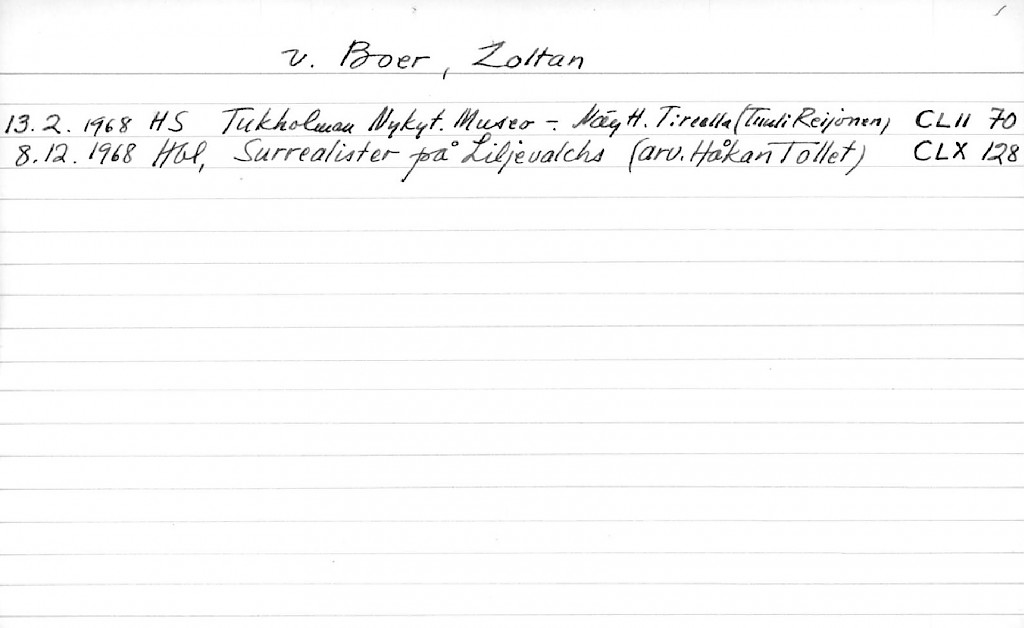 v. Boer, Zoltan
13.2.1968 HS Tukholman Nykyt. Museo - Näytt. (Tuuli Reijonen) CLII 70
8.12.1968 Hbl, Surrealister på Liljevalchs (arv. Håkan Tollet) CLX 128